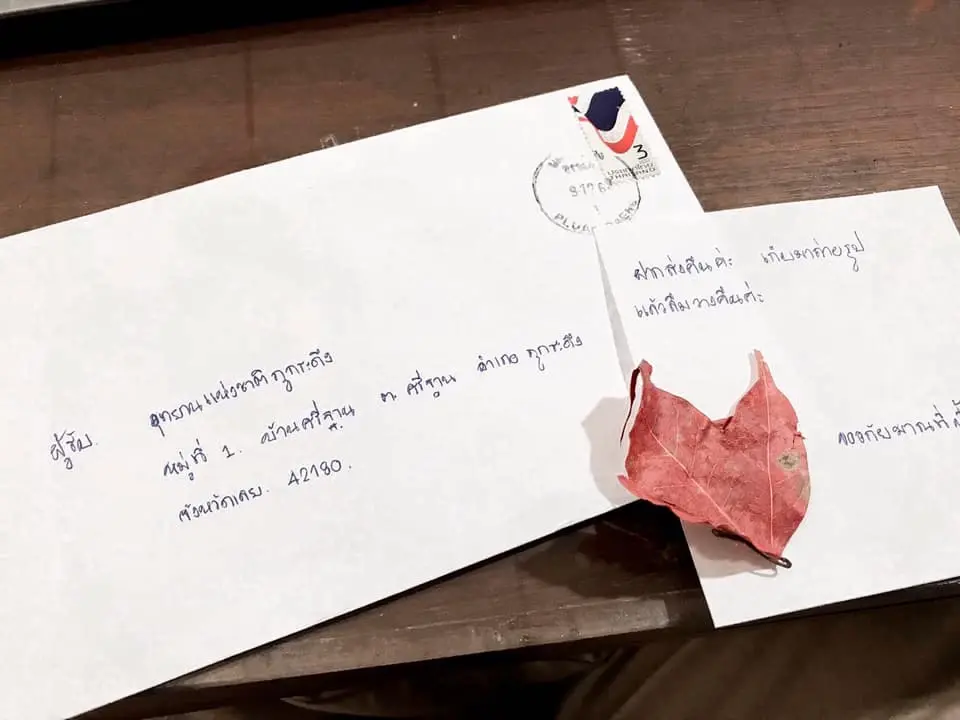 3
ประเทศไทย
THAILAND
ผู้รับ. อุทยานแห่งชาติภูกระดึง
หมู่ที่ 1. บ้านศรีฐาน ต. ศรีฐาน อำเภอ ภูกระดึง
จังหวัดเลย. 42180.
ฝากส่งคืนค่ะ เก็บมาถ่ายรูป
แล้วลืมวางคืนค่ะ
ขออภัยมาณที่